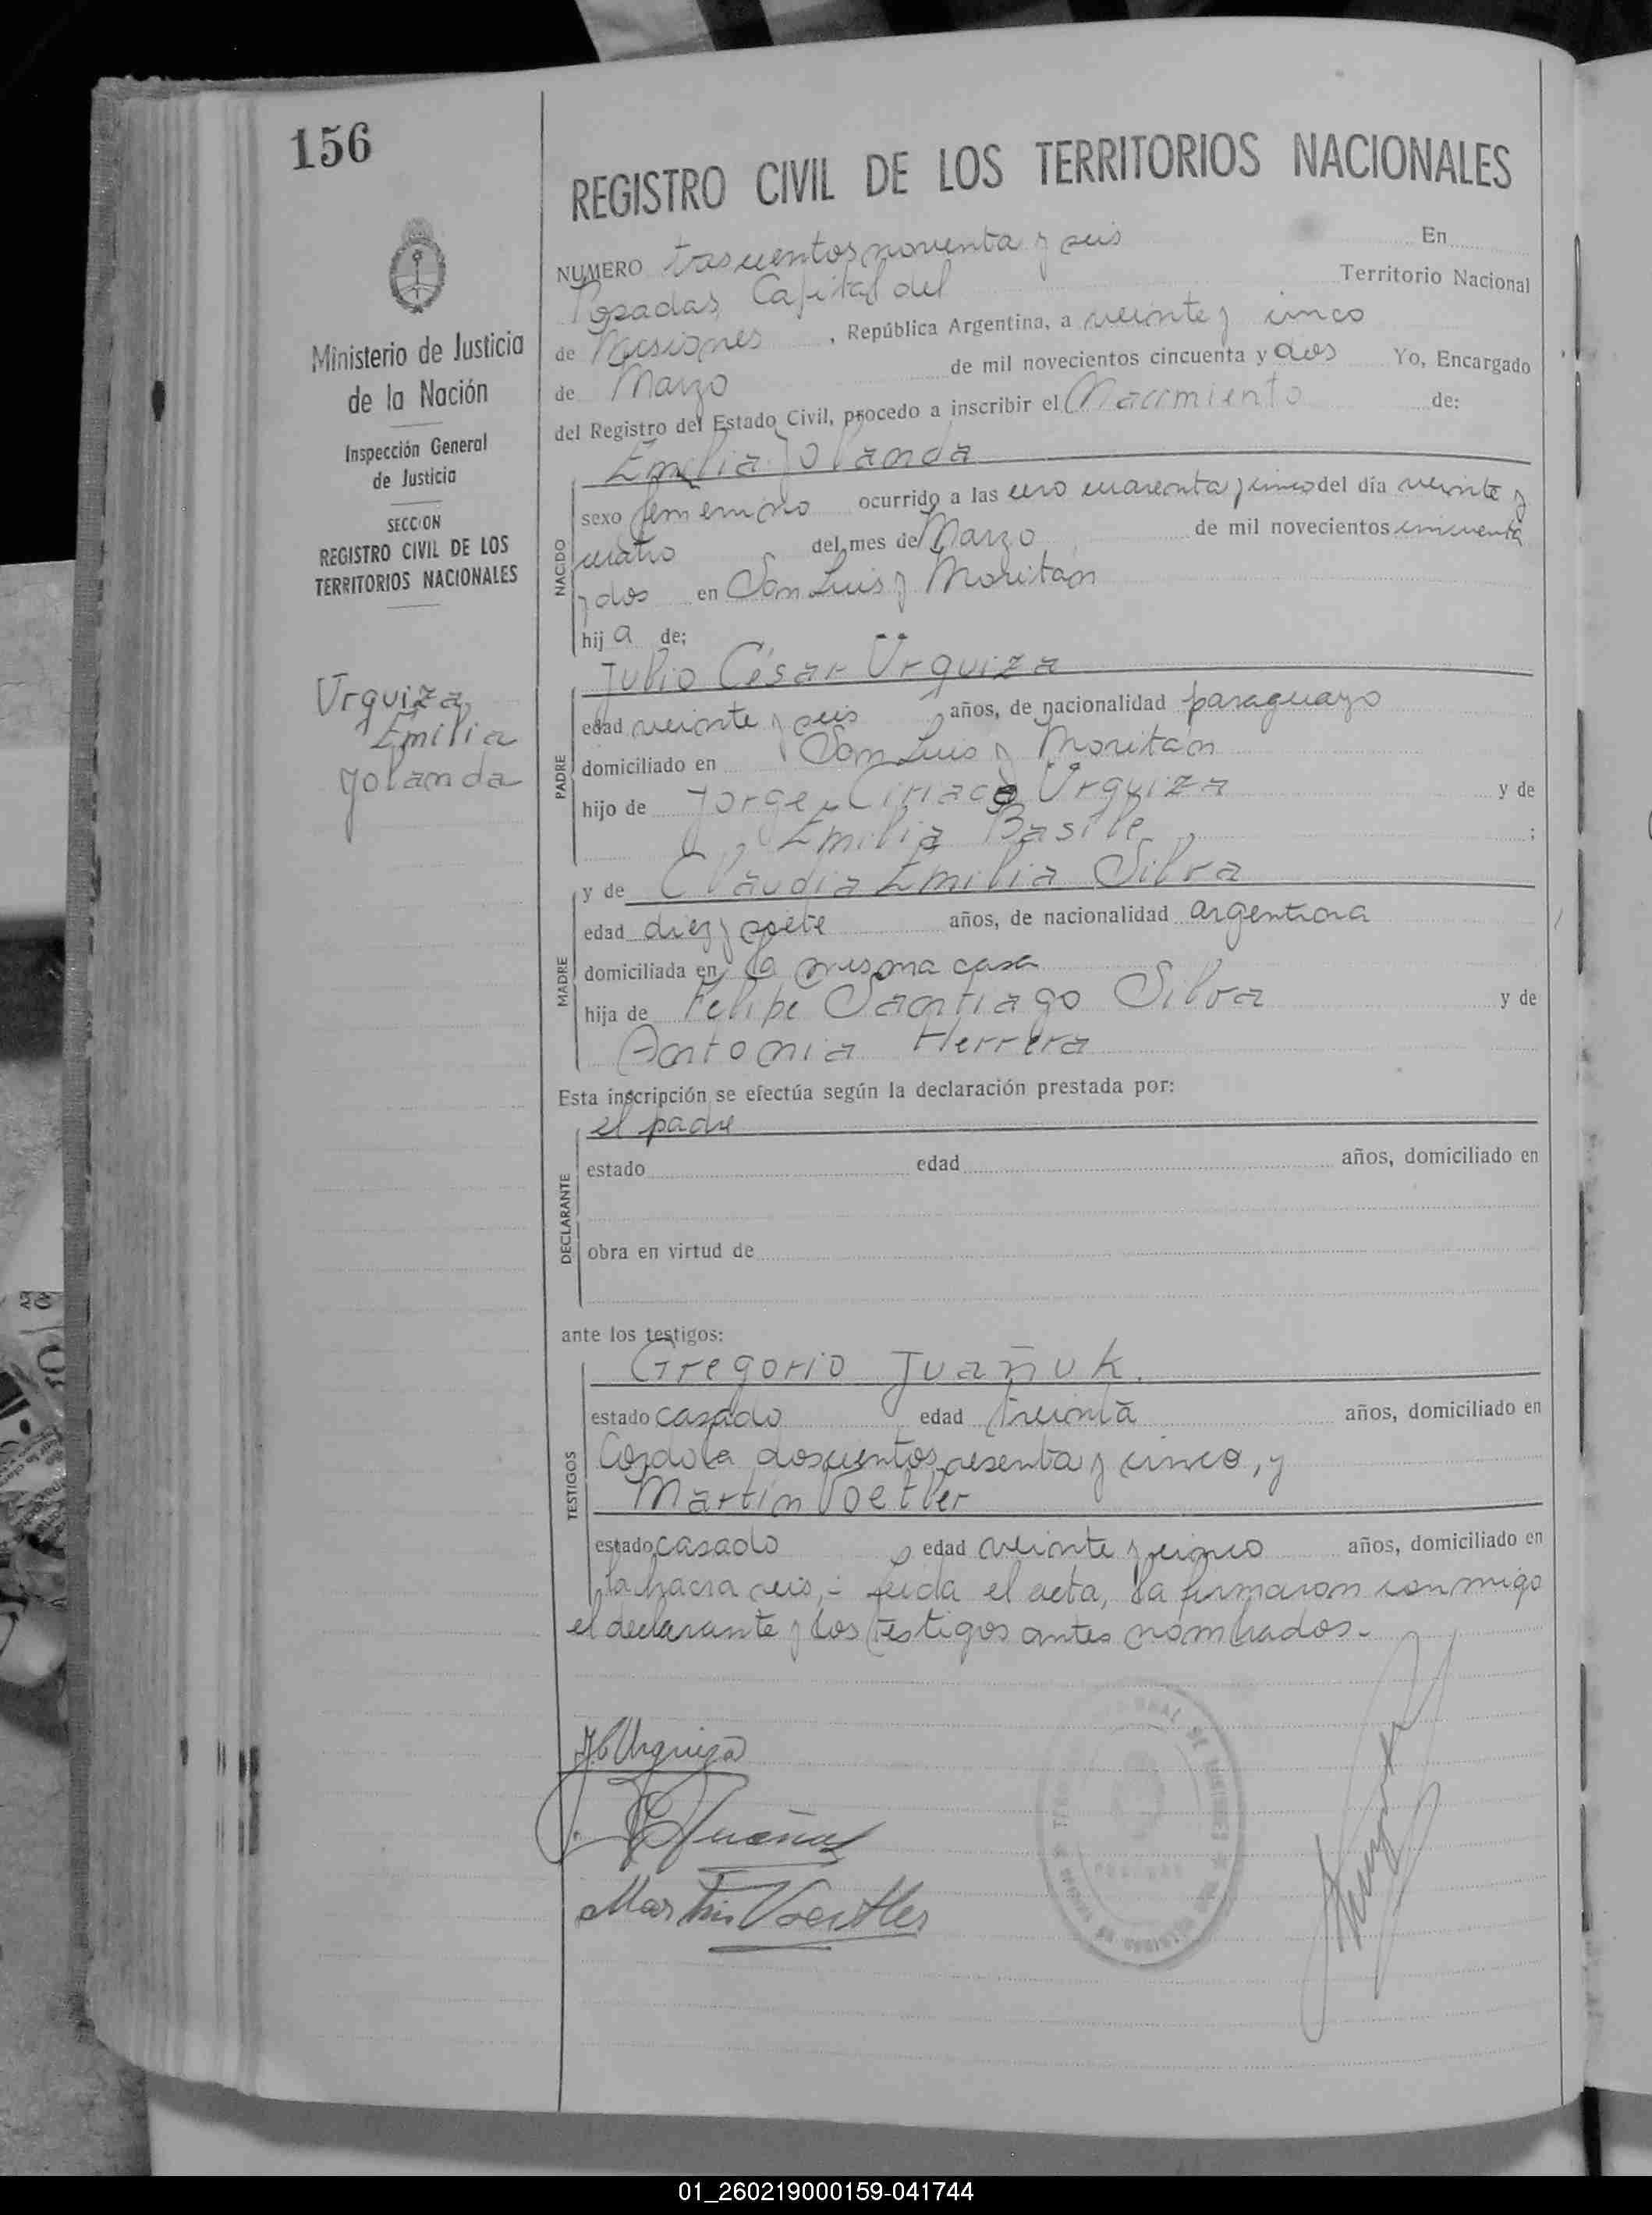 156
REGISTRO CIVIL DE LOS TERRITORIOS NACIONALES
Ministerio de Justicia
de la Nación
Inspección General
de Justicia
SECCION
REGISTRO CIVIL DE LOS
TERRITORIOS NACIONALES
Urquiza
Emilia
Yolanda
NUMERO trescientos noventa y seis En
Posadas, Capital del Territorio Nacional
de Misiones, República Argentina, a veinte y cinco
de Marzo de mil novecientos cincuenta y dos Yo, Encargado
del Registro del Estado Civil, procedo a inscribir el Nacimiento de:
Emilia Yolanda
NACIDO
sexo femenino ocurrido a las cero cuarenta y cinco del día veinte y
cuatro del mes de Marzo de mil novecientos cincuenta
y dos en San Luis y Moritán
hija de:
Julio César Urquiza
PADRE
edad veinte y seis años, de nacionalidad paraguayo
domiciliado en San Luis y Moritán
hijo de Jorge Ciriaco Urquiza y de
Emilia Basile ;
y de Claudia Emilia Silva
MADRE
edad diez y siete años, de nacionalidad argentina
domiciliada en la misma casa
hija de Felipe Santiago Silva y de
Antonia Herrera
Esta inscripción se efectúa según la declaración prestada por:
el padre
DECLARANTE
estado edad años, domiciliado en
obra en virtud de
ante los testigos:
Gregorio Juañuk.
TESTIGOS
estado casado edad treinta años, domiciliado en
Cordoba doscientos sesenta y cinco, y
Martín Voetler
estado casado edad veinte y cinco años, domiciliado en
la chacra seis,- Leida el acta, la firmaron conmigo
el declarante y los testigos antes nombrados.-
J.C. Urquiza
Martin Voettler
01_260219000159-041744